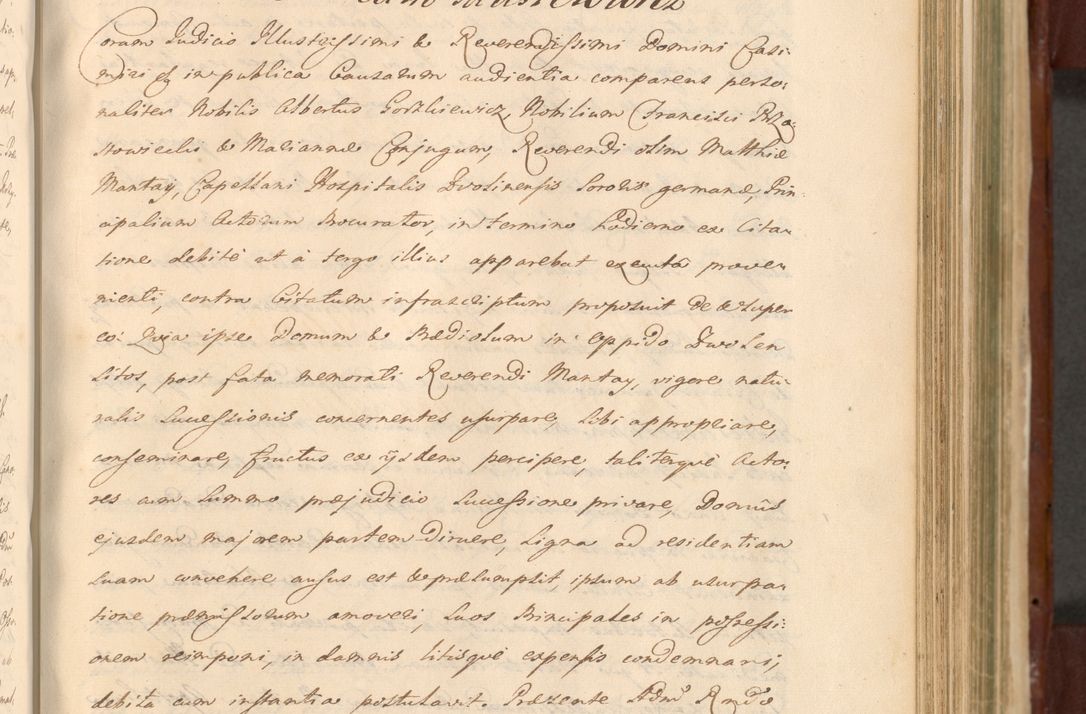 Coram Judicio Illustrissimi & Reverendissimi Domini Casi-
miri & in publica Causarum audientia comparens perso-
naliter Nobilis Albertus Gorzkiewicz, Nobilium Francisci Rza-
Mariannæ Conjugum, Reverendi olim Matthiæ
Mantay, Capellani Hospitalis Dvolinensis Sororis germanæ, Prin-
cipalium Actorum Procurator, in termino hodierno ex Cita-
tione debitè ut à tergo illius apparebat executâ prove-
nienti, contra Citatum infrascriptum proposuit de & super
eo: Quia ipse Domum & Prædiolum in Oppido Dwolen
Sitos, post fata memorati Reverendi Mantay, vigore natu-
ralis Successionis concernentes usurpare, Sibi appropriare,
conseminare, fructus ex ijsdem percipere, taliterquè Acto-
res cum Summo præjudicio Successione privare, Domûs
ejusdem majorem partem diruere, Ligna ad residentiam
Suam convehere ausus est & præsumpsit, ipsum ab usurpa-
tione præmissorum amoveri, Suos Principales in possessi-
onem reimponi, in damnis litisquè expensis condemnari,
debita cum instantia postulavit. Præsente Adm: Rndo